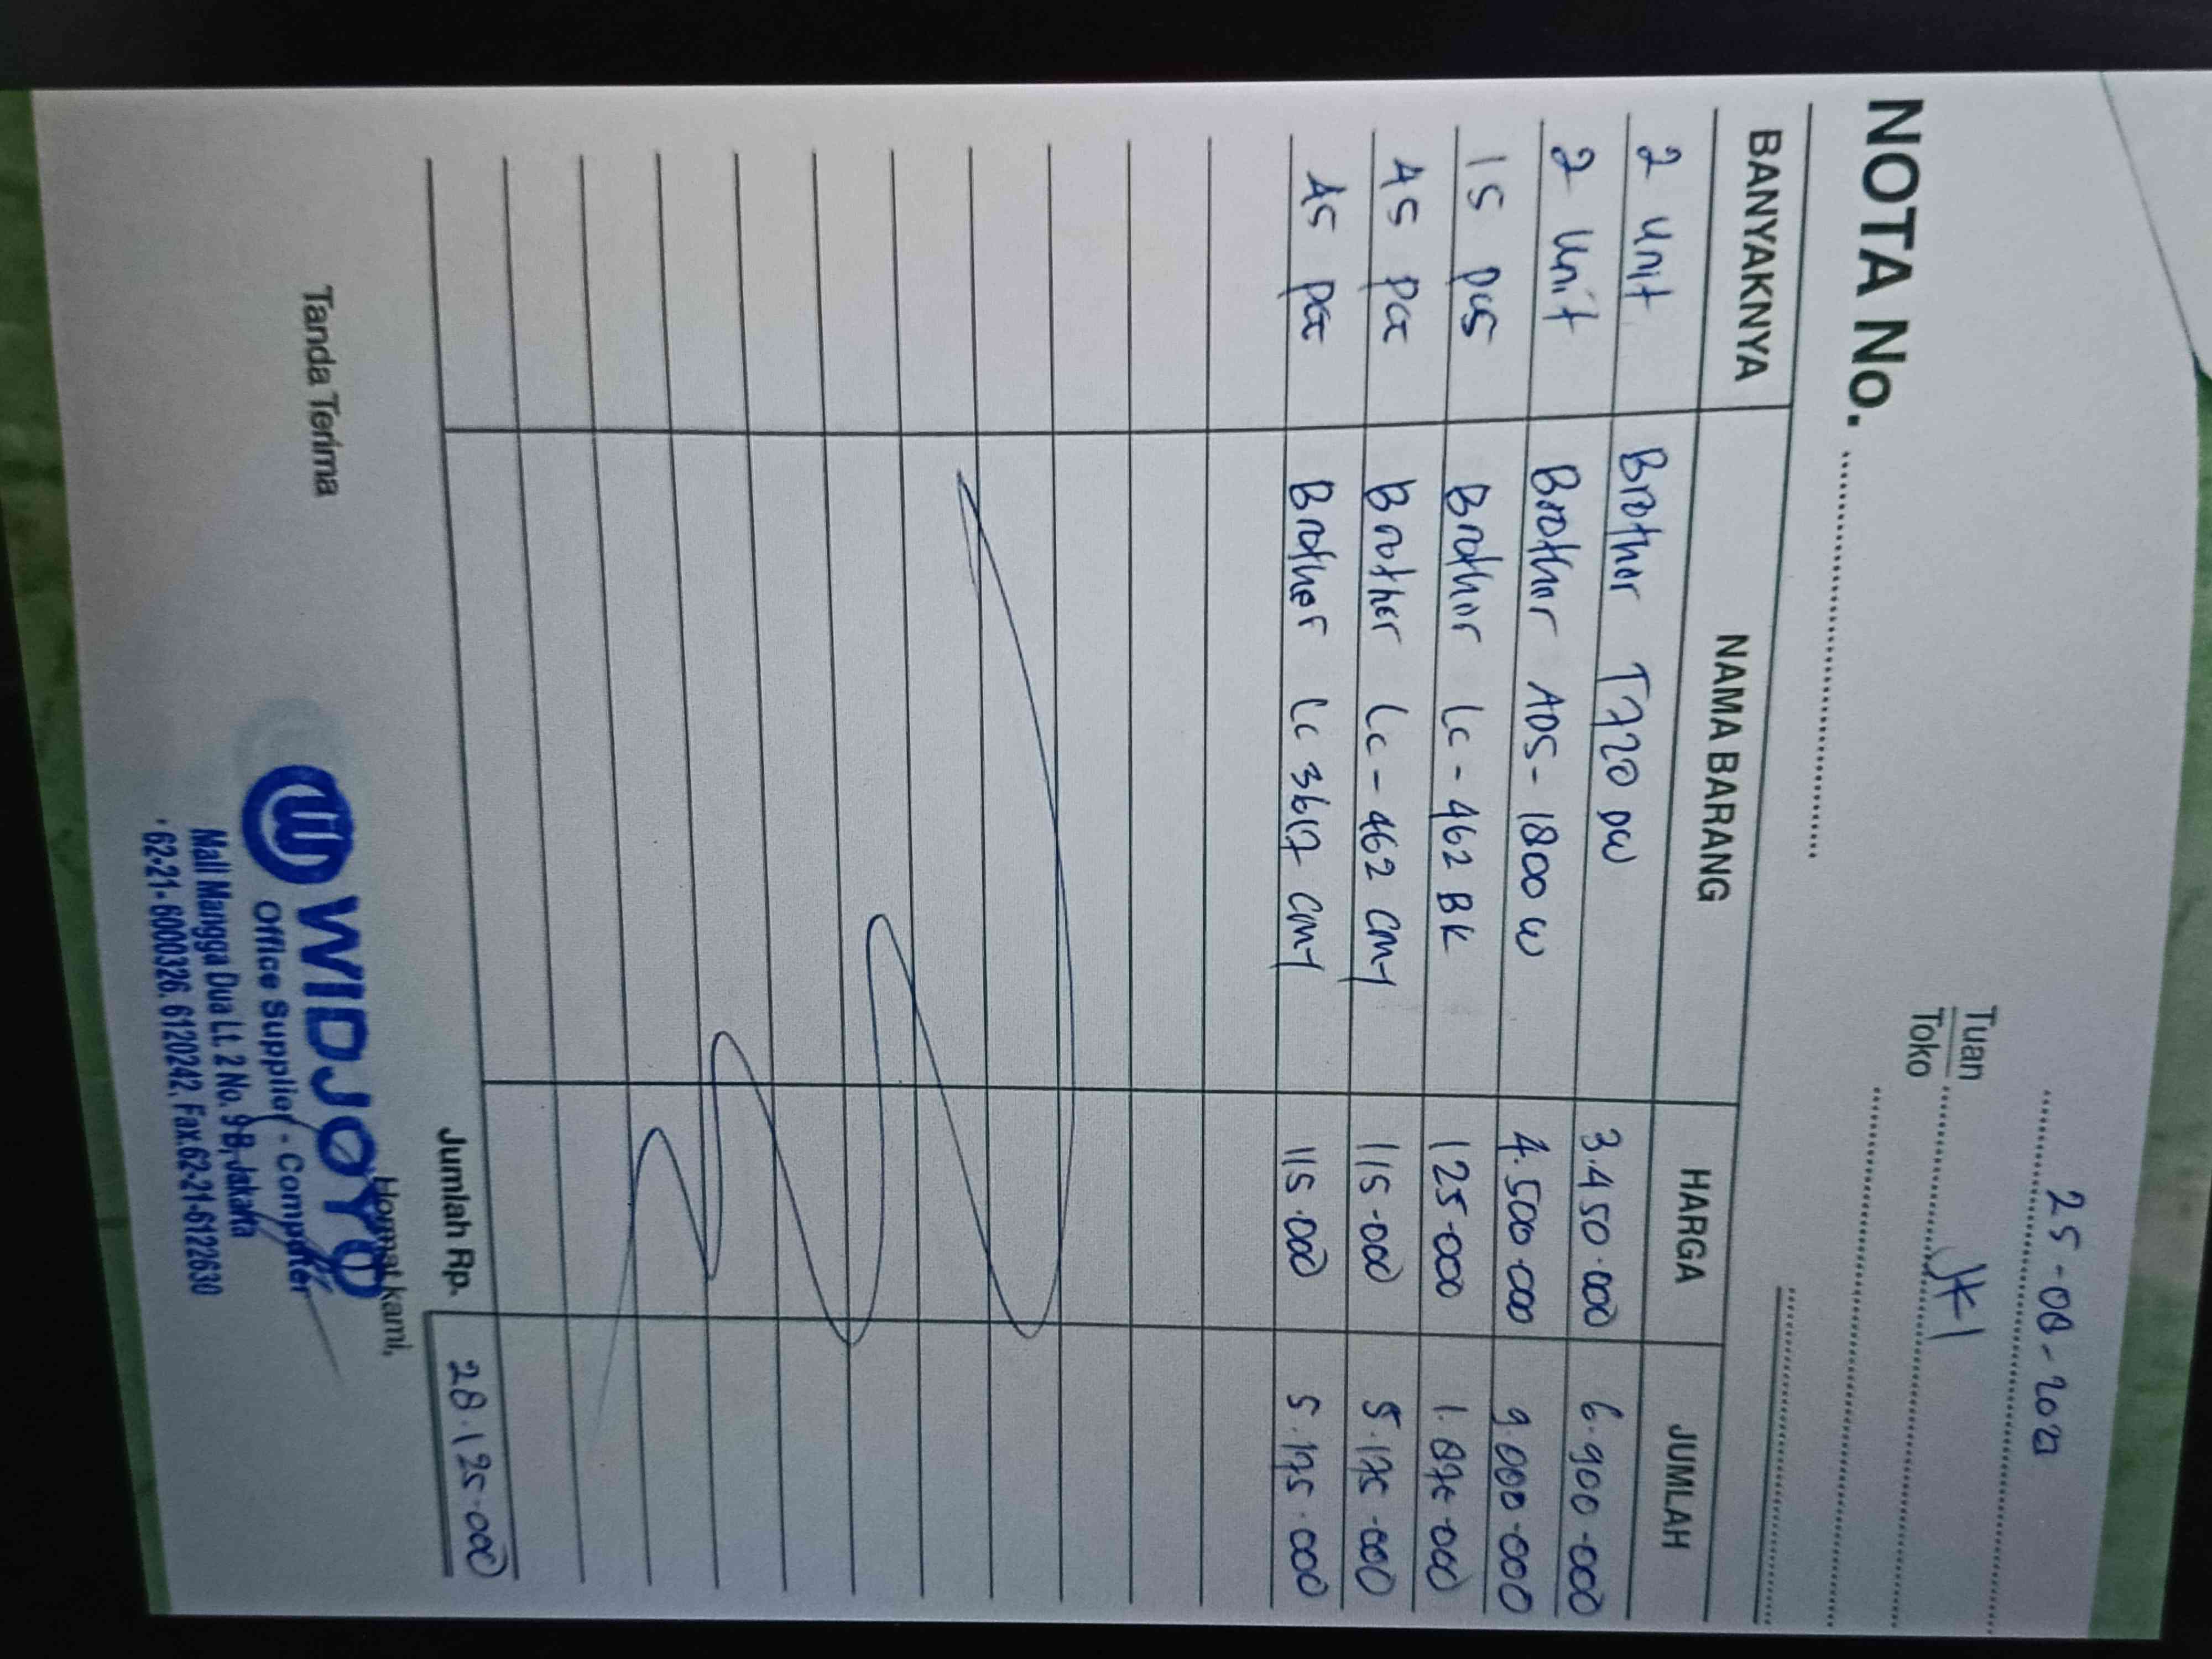 25-08-2021
Tuan
Toko
NOTA No.
BANYAKNYA NAMA BARANG HARGA JUMLAH
2 Unit Brother T720 DW 3.450.000 6.900.000
2 Unit Brother ADS-1800 W 4.500.000 9.000.000
15 pcs Brother LC-462 BK 125.000 1.875.000
45 pcs Brother LC-462 CMY 115.000 5.175.000
45 pcs Brother LC 3617 CMY 115.000 5.175.000
Jumlah Rp. 28.125.000
Tanda Terima Hormat kami,
WIDJOYO
Office Supplier - Computer
Mall Mangga Dua Lt. 2 No. 9B, Jakarta
62-21-6000326, 6120242, Fax.62-21-6122630